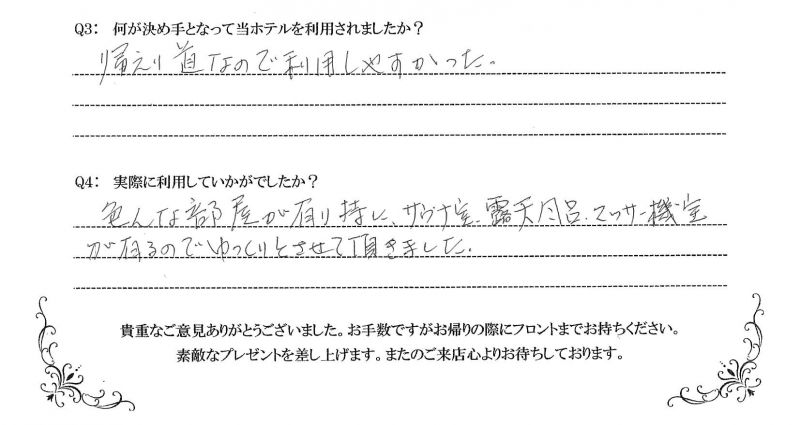 Q3: 何が決め手となって当ホテルを利用されましたか？
帰えり道なので利用しやすかった。
Q4: 実際に利用していかがでしたか？
色んな部屋が有り特に、サウナ室、露天風呂、マッサー機室
が有るのでゆっくりとさせて頂きました。
貴重なご意見ありがとうございました。お手数ですがお帰りの際にフロントまでお持ちください。
素敵なプレゼントを差し上げます。またのご来店心よりお待ちしております。